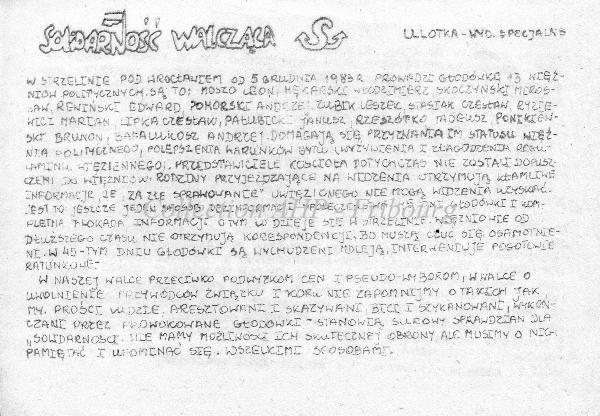 SOLIDARNOŚĆ WALCZĄCA
ULLOTKA-WYD. SPECJALNE
W STRZELINIE POD WROCŁAWIEM OD 5 GRUDNIA 1983 R PROWADZI GŁODÓWKĘ 13 WIĘŹ-
NIÓW POLITYCZNYCH. SĄ TO: MOSZO LEON, MĘKARSKI WŁODZIMIERZ SKOCZYŃSKI MIROS-
ŁAW, RENIŃSKI EDWARD, POMORSKI ANDRZEJ, ZUBIK LESZEK, STASIAK CZESŁAW,
MARIAN LIPKA CZESŁAW, PAŁUBICKI JANUSZ, RZESZÓTKO TADEUSZ PONIKIEW-
SKI BRUNON, ANDRZEJ. DOMAGAJĄ SIĘ PRZYZNANIA IM STATUSU WIĘŹ-
NIA POLITYCZNEGO, POLEPSZENIA WARUNKÓW BYTU (WYŻYWIENIA I ZŁAGODZENIA REGU-
LAMINU WIĘZIENNEGO). PRZEDSTAWICIELE KOŚCIOŁA DOTYCHCZAS NIE ZOSTALI DOPUSZ-
CZENI DO WIĘŹNIÓW. RODZINY PRZYJEŻDŻAJĄCE NA WIDZENIA OTRZYMUJĄ KŁAMLIWE
INFORMACJE, ŻE „ZA ZŁE SPRAWOWANIE" UWIĘZIONEGO NIE MOGĄ WIDZENIA UZYSKAĆ.
JEST TO JESZCZE JEDEN SPOSÓB DEZINFORMACJI SPOŁECZEŃSTWA GŁODÓWKI I KOM-
PLETNA BLOKADA INFORMACJI O TYM CO DZIEJE SIĘ W STRZELINIE. WIĘŹNIOWIE OD
DŁUŻSZEGO CZASU NIE OTRZYMUJĄ KORESPONDENCJI, BO MUSZĄ CZUĆ SIĘ OSAMOTNIE-
NI. W 45-TYM DNIU GŁODÓWKI SĄ WYCHUDZENI MDLEJĄ, INTERWENIUJE POGOTOWIE
RATUNKOWE.
W NASZEJ WALCE PRZECIWKO PODWYŻKOM CEN I PSEUDO-WYBOROM, W WALCE O
UWOLNIENIE PRZYWÓDCÓW ZWIĄZKU I KORU NIE ZAPOMNIJMY O TAKICH JAK
MY. PROŚCI LUDZIE, ARESZTOWANI I SKAZYWANI, BICI I SZYKANOWANI, WYKOŃ-
CZANI PRZEZ PROWOKOWANE GŁODÓWKI - STANOWIĄ SUROWY SPRAWDZIAN DLA
„SOLIDARNOŚCI. NIE MAMY MOŻLIWOŚCI ICH SKUTECZNEJ OBRONY ALE MUSIMY O NICH
PAMIĘTAĆ I UPOMINAĆ SIĘ. WSZELKIMI SPOSOBAMI.